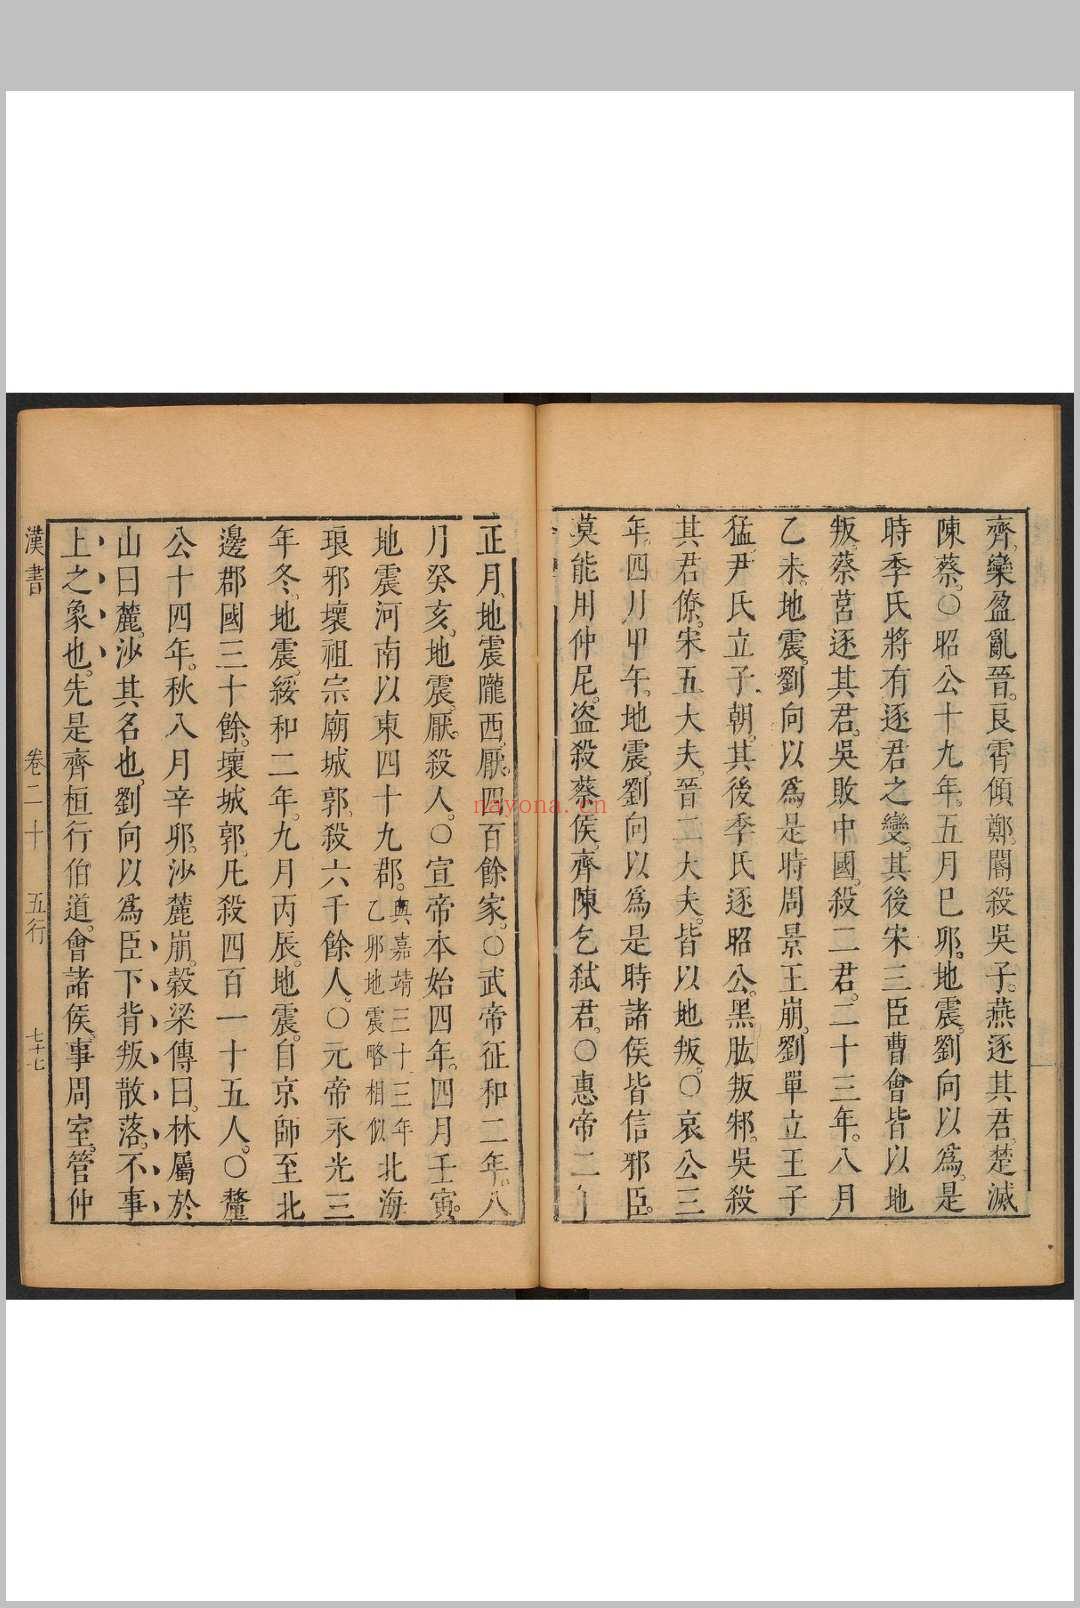 齊。欒盈亂晉。良霄傾鄭。閽殺吳子。燕逐其君。楚滅
陳蔡。○昭公十九年。五月巳邜。地震。劉向以爲。是
時季氏將有逐君之變。其後宋三臣曹會皆以地
叛。蔡莒逐其君。吳敗中國。殺二君。二十三年。八月
乙未。地震。劉向以爲是時周景王崩。劉單立王子
猛。尹氏立子朝。其後季氏逐昭公。黑肱叛邾。吳殺
其君僚。宋五大夫。晉二大夫。皆以地叛。○哀公三
年。四月甲午。地震。劉向以爲是時諸侯皆信邪臣。
莫能用仲尼。盜殺蔡侯。齊陳乞弑君。○惠帝二年
正月。地震隴西。厭四百餘家。○武帝征和二年。八
月癸亥。地震。厭殺人。○宣帝本始四年。四月壬寅。
地震河南以東四十九郡。與嘉靖三十三年乙邜地震略相似北海
琅邪壞祖宗廟城郭。殺六千餘人。○元帝永光三
年冬。地震。綏和二年。九月丙辰。地震。自京師至北
邊郡國三十餘。壞城郭。凡殺四百一十五人。○釐
公十四年。秋八月辛邜。沙麓崩。穀梁傳曰。林屬於
山曰麓。沙其名也。劉向以爲臣下背叛散落。不事
上之象也。先是齊桓行伯道。會諸侯。事周室。管仲
漢書 卷二十 五行 七十七
nayona.cn